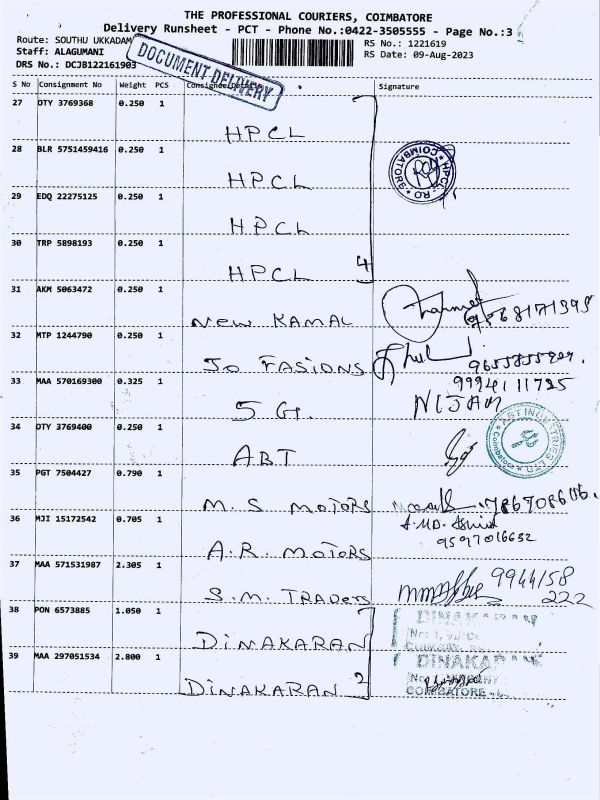 THE PROFESSIONAL COURIERS, COIMBATORE
Delivery Runsheet - PCT - Phone No.:0422-3505555 - Page No.:3
Route: SOUTHU UKKADAM
RS No.: 1221619
Staff: ALAGUMANI
RS Date: 09-Aug-2023
DRS No.: DCJB122161903
DOCUMENT DELIVERY
S No Consignment No Weight PCS Consignee Details Signature
27 OTY 3769368 0.250 1
HPCL
28 BLR 5751459416 0.250 1
HPCL - RO
COIMBATORE
HPCL
29 EDQ 22275125 0.250 1
HPCL
30 TRP 5898193 0.250 1
HPCL 4
31 AKM 5063472 0.250 1
New KAMAL
32 MTP 1244790 0.250 1
Jo FASIONS
33 MAA 570169300 0.325 1
9994111725
5 G. NIJAM
34 OTY 3769400 0.250 1
ABT INDUSTRIES LTD
Coimbatore
ABT
35 PGT 7504427 0.790 1
M. S MOTORS
36 MJI 15172542 0.705 1
9597016632
A.R. MOTORS
37 MAA 571531987 2.305 1
9944158
222
S.M. TRADERS
38 PON 6573885 1.050 1
DINAKARAN
DINAKARAN
39 MAA 297051534 2.800 1
DINAKARAN
DINAKARAN 2
COIMBATORE